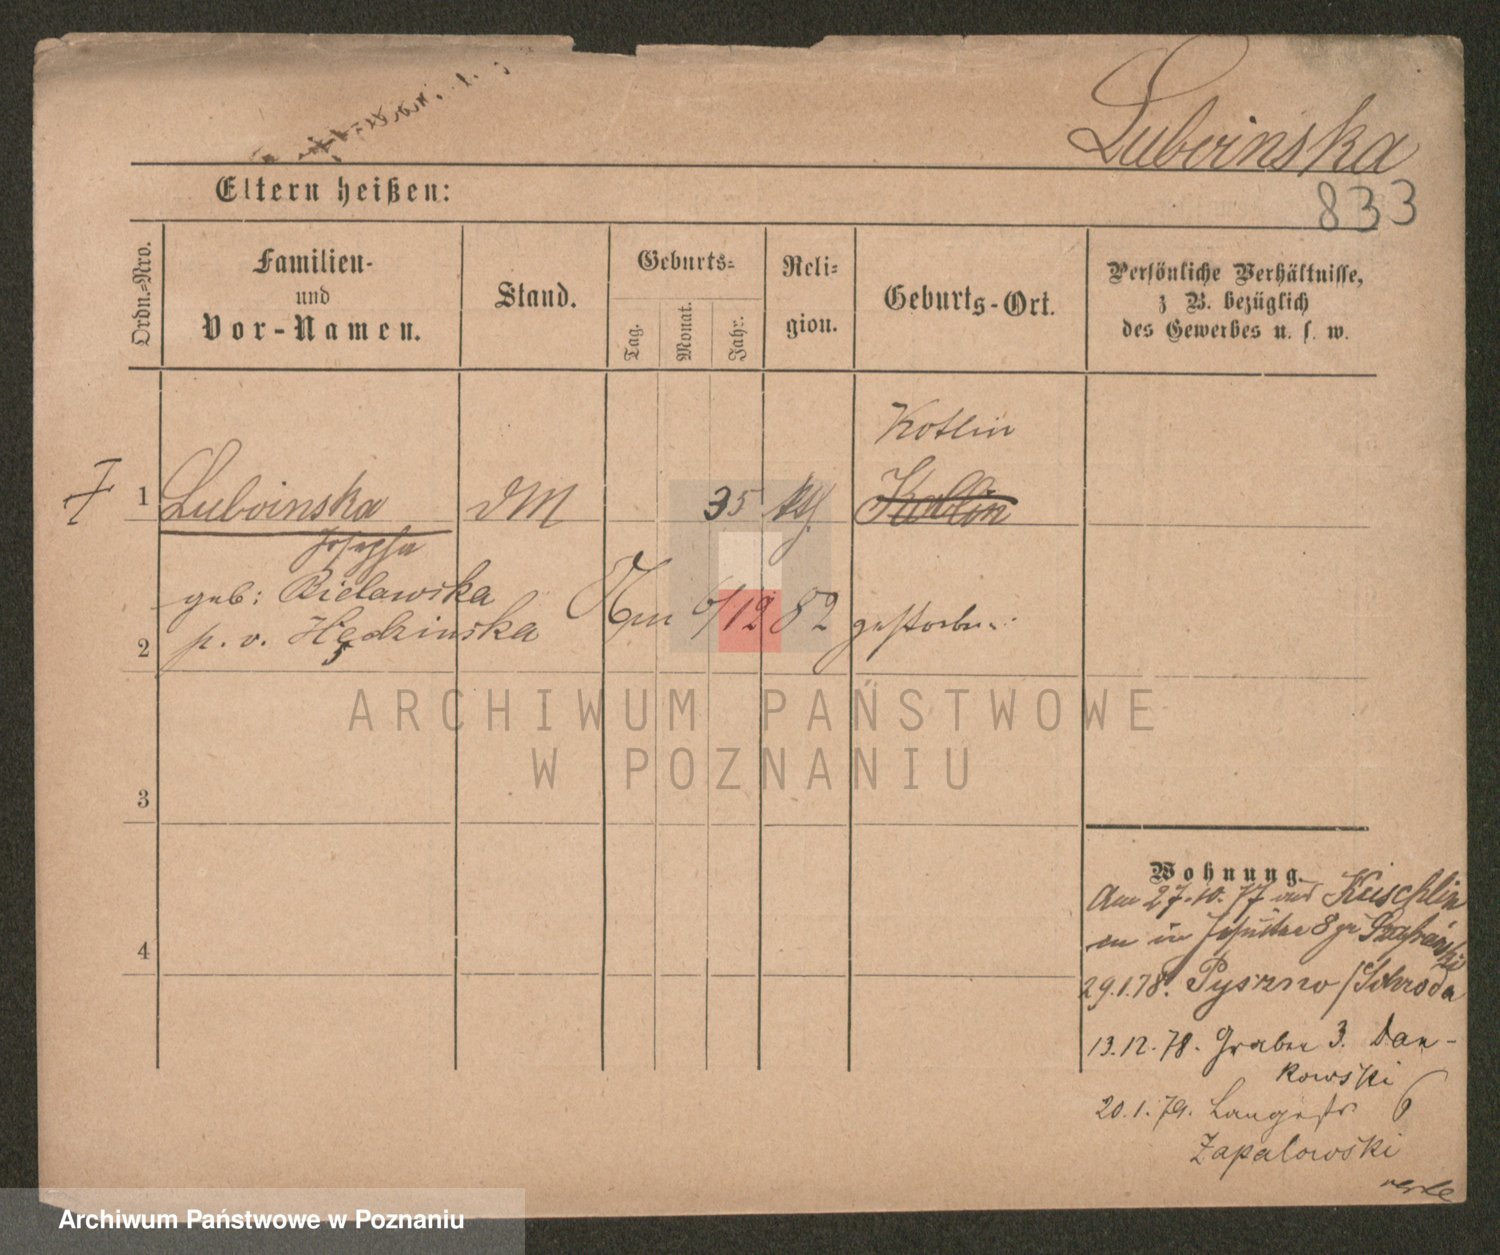 Luboinska
833
Eltern heißen:
Ordn.-Nro.
Familien-
und
Vor-Namen.
Stand.
Geburts-
Tag.
Monat.
Jahr.
Reli-
gion.
Geburts-Ort.
Persönliche Verhältnisse,
z B. bezüglich
des Gewerbes u. s. w.
Kotlin
1 Luboinska 35
Josepha
geb: Bielawska
2 p. v. Hędzinska 6/12 82 gestorben
3
Wohnung
Am 27.10.77 aus Kuschlin
29.1.78. Pyszno / Schroda
13.12.78. Graben 3. Dan-
kowski
20.1.79. Langestr 6
Zapalowski
4
ARCHIWUM PAŃSTWOWE
W POZNANIU
Archiwum Państwowe w Poznaniu